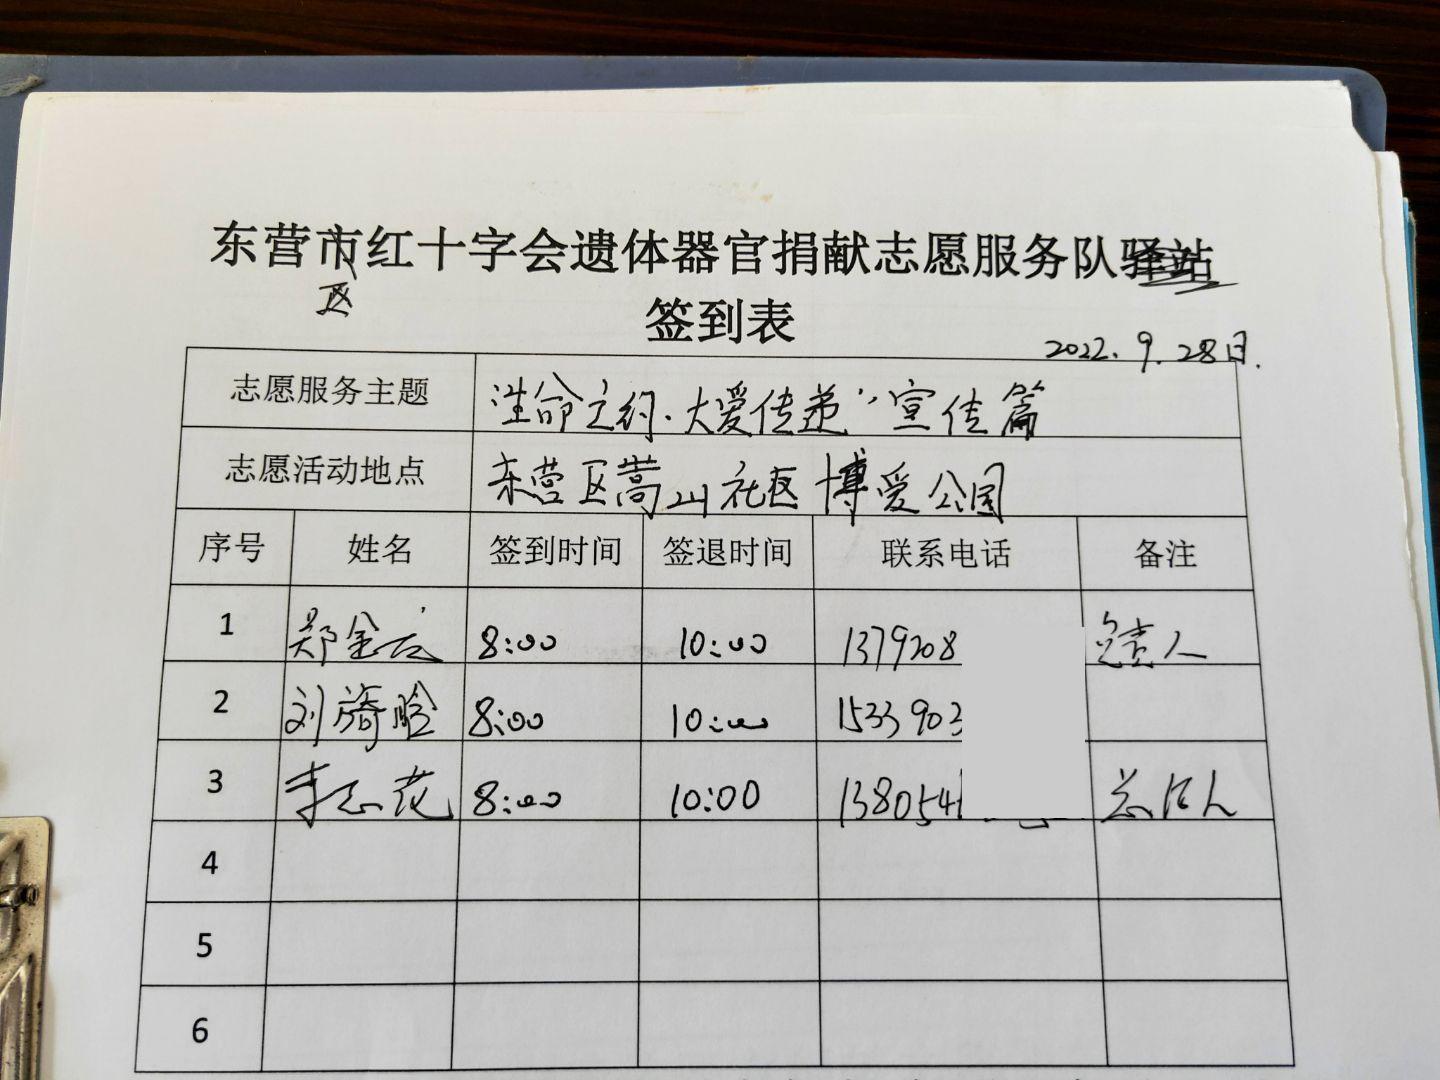 东营市红十字会遗体器官捐献志愿服务队驿站
区
签到表
2022.9.28日.
志愿服务主题 "生命之约·大爱传递"宣传篇
志愿活动地点 东营区嵩山社区博爱公园
序号 姓名 签到时间 签退时间 联系电话 备注
1 郑金 8:00 10:00 1379208 负责人
2 刘旖晗 8:00 10:00 1533903
3 李志花 8:00 10:00 1380546 总活人
4
5
6